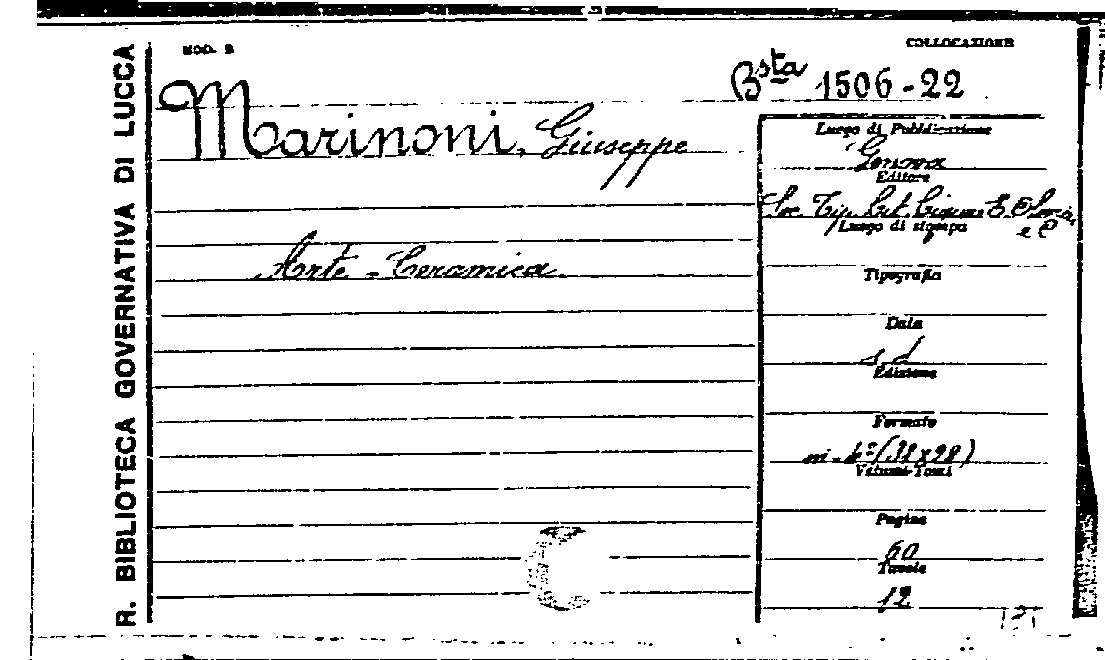 R. BIBLIOTECA GOVERNATIVA DI LUCCA
MOD. B
COLLOCAZIONE
Bsta 1506-22
Marinoni, Giuseppe
Arte - Ceramica
Luogo di Pubblicazione
Genova
Editore
Soc. Tip. Lit. E.
e C
Luogo di stampa
Tipografia
Data
s d
Edizione
Formato
in-4º (38x28)
Volumi-Tomi
Pagine
60
Tavole
12